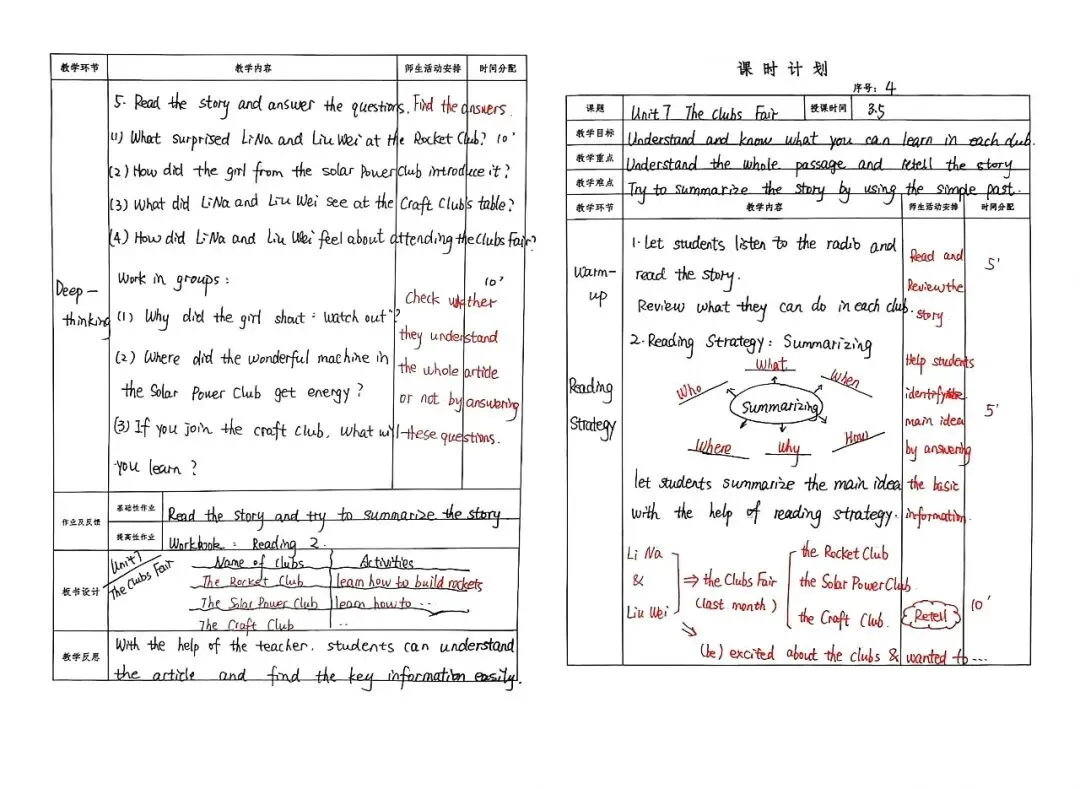 教学环节 教学内容 师生活动安排 时间分配
5. Read the story and answer the questions. Find the answers.
(1) What surprised Li Na and Liu Wei at the Rocket Club? 10'
(2) How did the girl from the solar Power Club introduce it?
(3) What did Li Na and Liu Wei see at the Craft Club's table?
(4) How did Li Na and Liu Wei feel about attending the Clubs Fair?
Deep-thinking
Work in groups: 10'
(1) Why did the girl shout: watch out"?
(2) Where did the wonderful machine in
the Solar Power Club get energy?
(3) If you join the craft club, what will
you learn?
Check whether
they understand
the whole article
or not by answering
these questions.
作业及反馈
基础性作业 Read the story and try to summarize the story
提高性作业 Workbook: Reading 2.
板书设计
Unit 7
The Clubs Fair
Name of clubs Activities
The Rocket Club learn how to build rockets
The Solar Power Club learn how to ...
The Craft Club ..
教学反思 With the help of the teacher, students can understand
the article and find the key information easily.
课时计划
序号: 4
课题 Unit 7 The Clubs Fair 授课时间 3.5
教学目标 Understand and know what you can learn in each club.
教学重点 Understand the whole passage and retell the story
教学难点 Try to summarize the story by using the simple past.
教学环节 教学内容 师生活动安排 时间分配
Warm-up
1. Let students listen to the radio and
read the story.
Review what they can do in each club.
Read and
Review the
story
5'
Reading
Strategy
2. Reading Strategy: Summarizing
What
Who When
Summarizing
Where Why How
let students summarize the main idea
with the help of reading strategy.
Help students
identify the
main idea
by answering
the basic
information.
5'
Li Na
&
Liu Wei
⇒ the Clubs Fair
(last month)
the Rocket Club
the Solar Power Club
the Craft Club.
Retell
10'
(be) excited about the clubs & wanted to ...